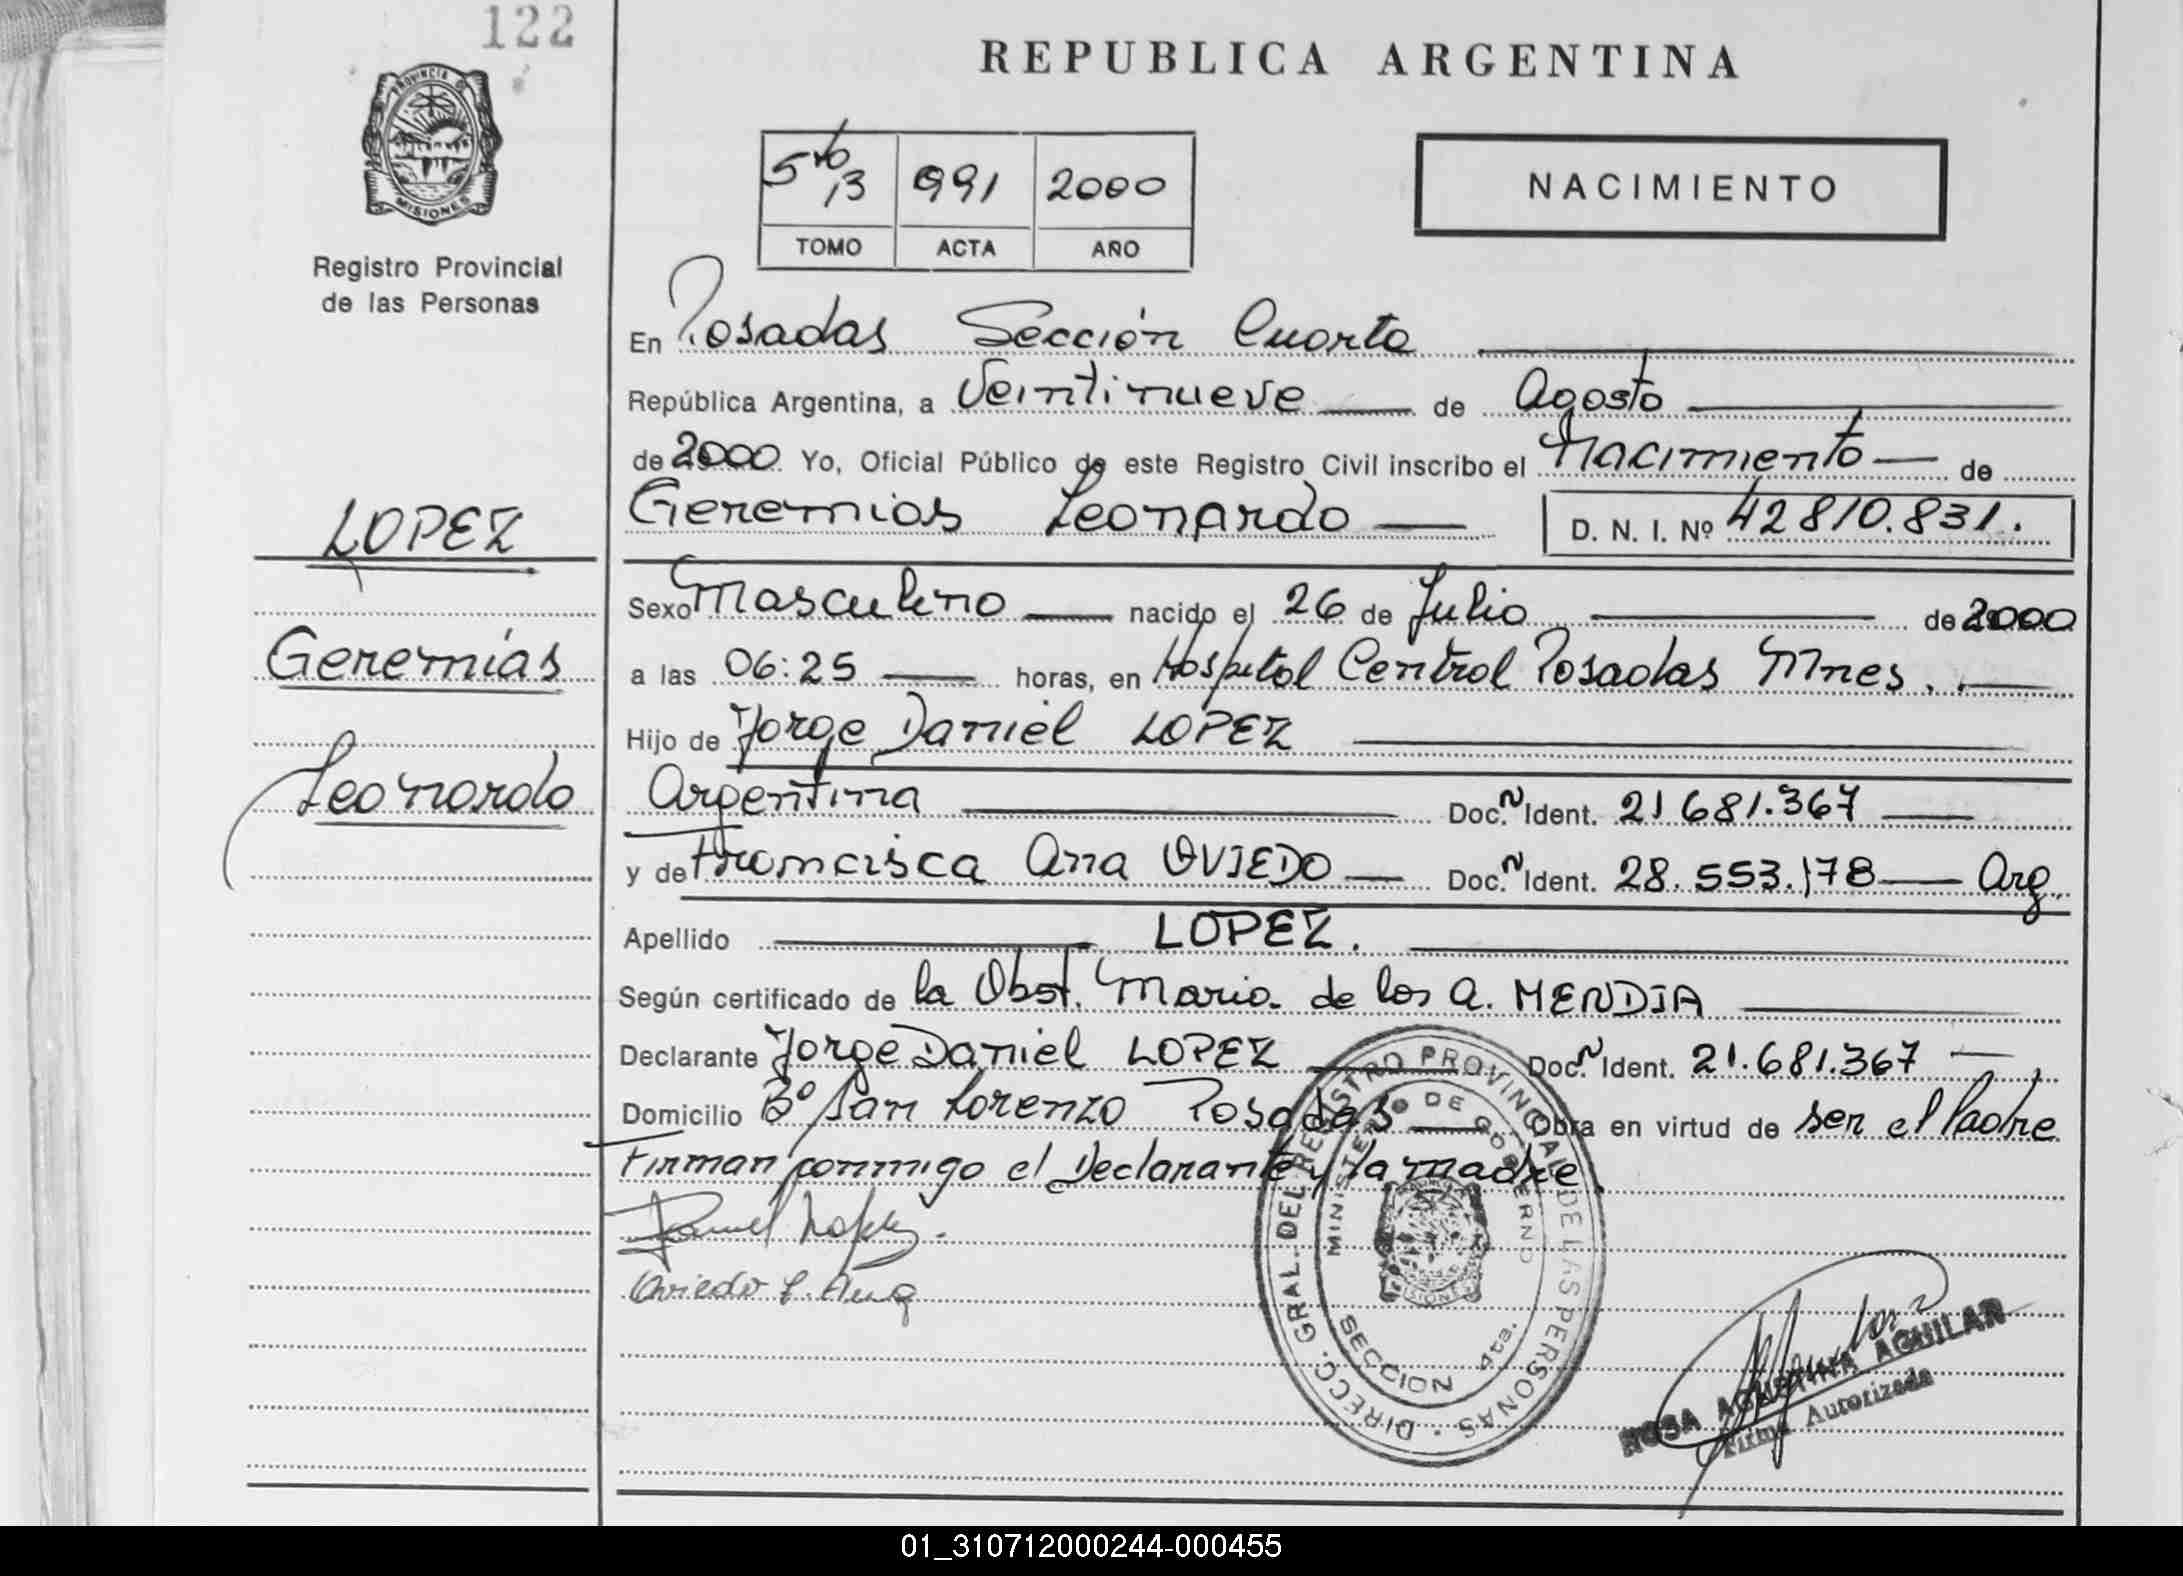 122
REPUBLICA ARGENTINA
PROVINCIA D
MISIONES
Registro Provincial
de las Personas
5to 13 991 2000
TOMO ACTA AÑO
NACIMIENTO
En Posadas Sección Cuarta
República Argentina, a Veintinueve de Agosto
de 2000 Yo, Oficial Público de este Registro Civil inscribo el Nacimiento de
Geremias Leonardo D. N. I. Nº 42810.831.
LOPEZ
Sexo Masculino nacido el 26 de Julio de 2000
Geremías
a las 06:25 horas, en Hospital Central Posadas Mnes.
Hijo de Jorge Daniel LOPEZ
Leonardo
Argentina Doc. N Ident. 21 681.367
y de Francisca Ana OVIEDO Doc. N Ident. 28.553.178 Arg.
Apellido LOPEZ.
Según certificado de la Obst. Maria de los A. MENDIA
Declarante Jorge Daniel LOPEZ Doc. N Ident. 21.681.367
Domicilio Bº San Lorenzo Posadas Obra en virtud de ser el Padre
Firman conmigo el Declarante y la madre.
Daniel Lopez.
Oviedo F. Ana
DIRECC. GRAL. DEL REGISTRO PROVINCIAL DE LAS PERSONAS
MINISTERIO DE GOBIERNO
MISIONES
SECCION 4ta.
ROSA AGUSTINA AGUILAR
Firma Autorizada
01_310712000244-000455